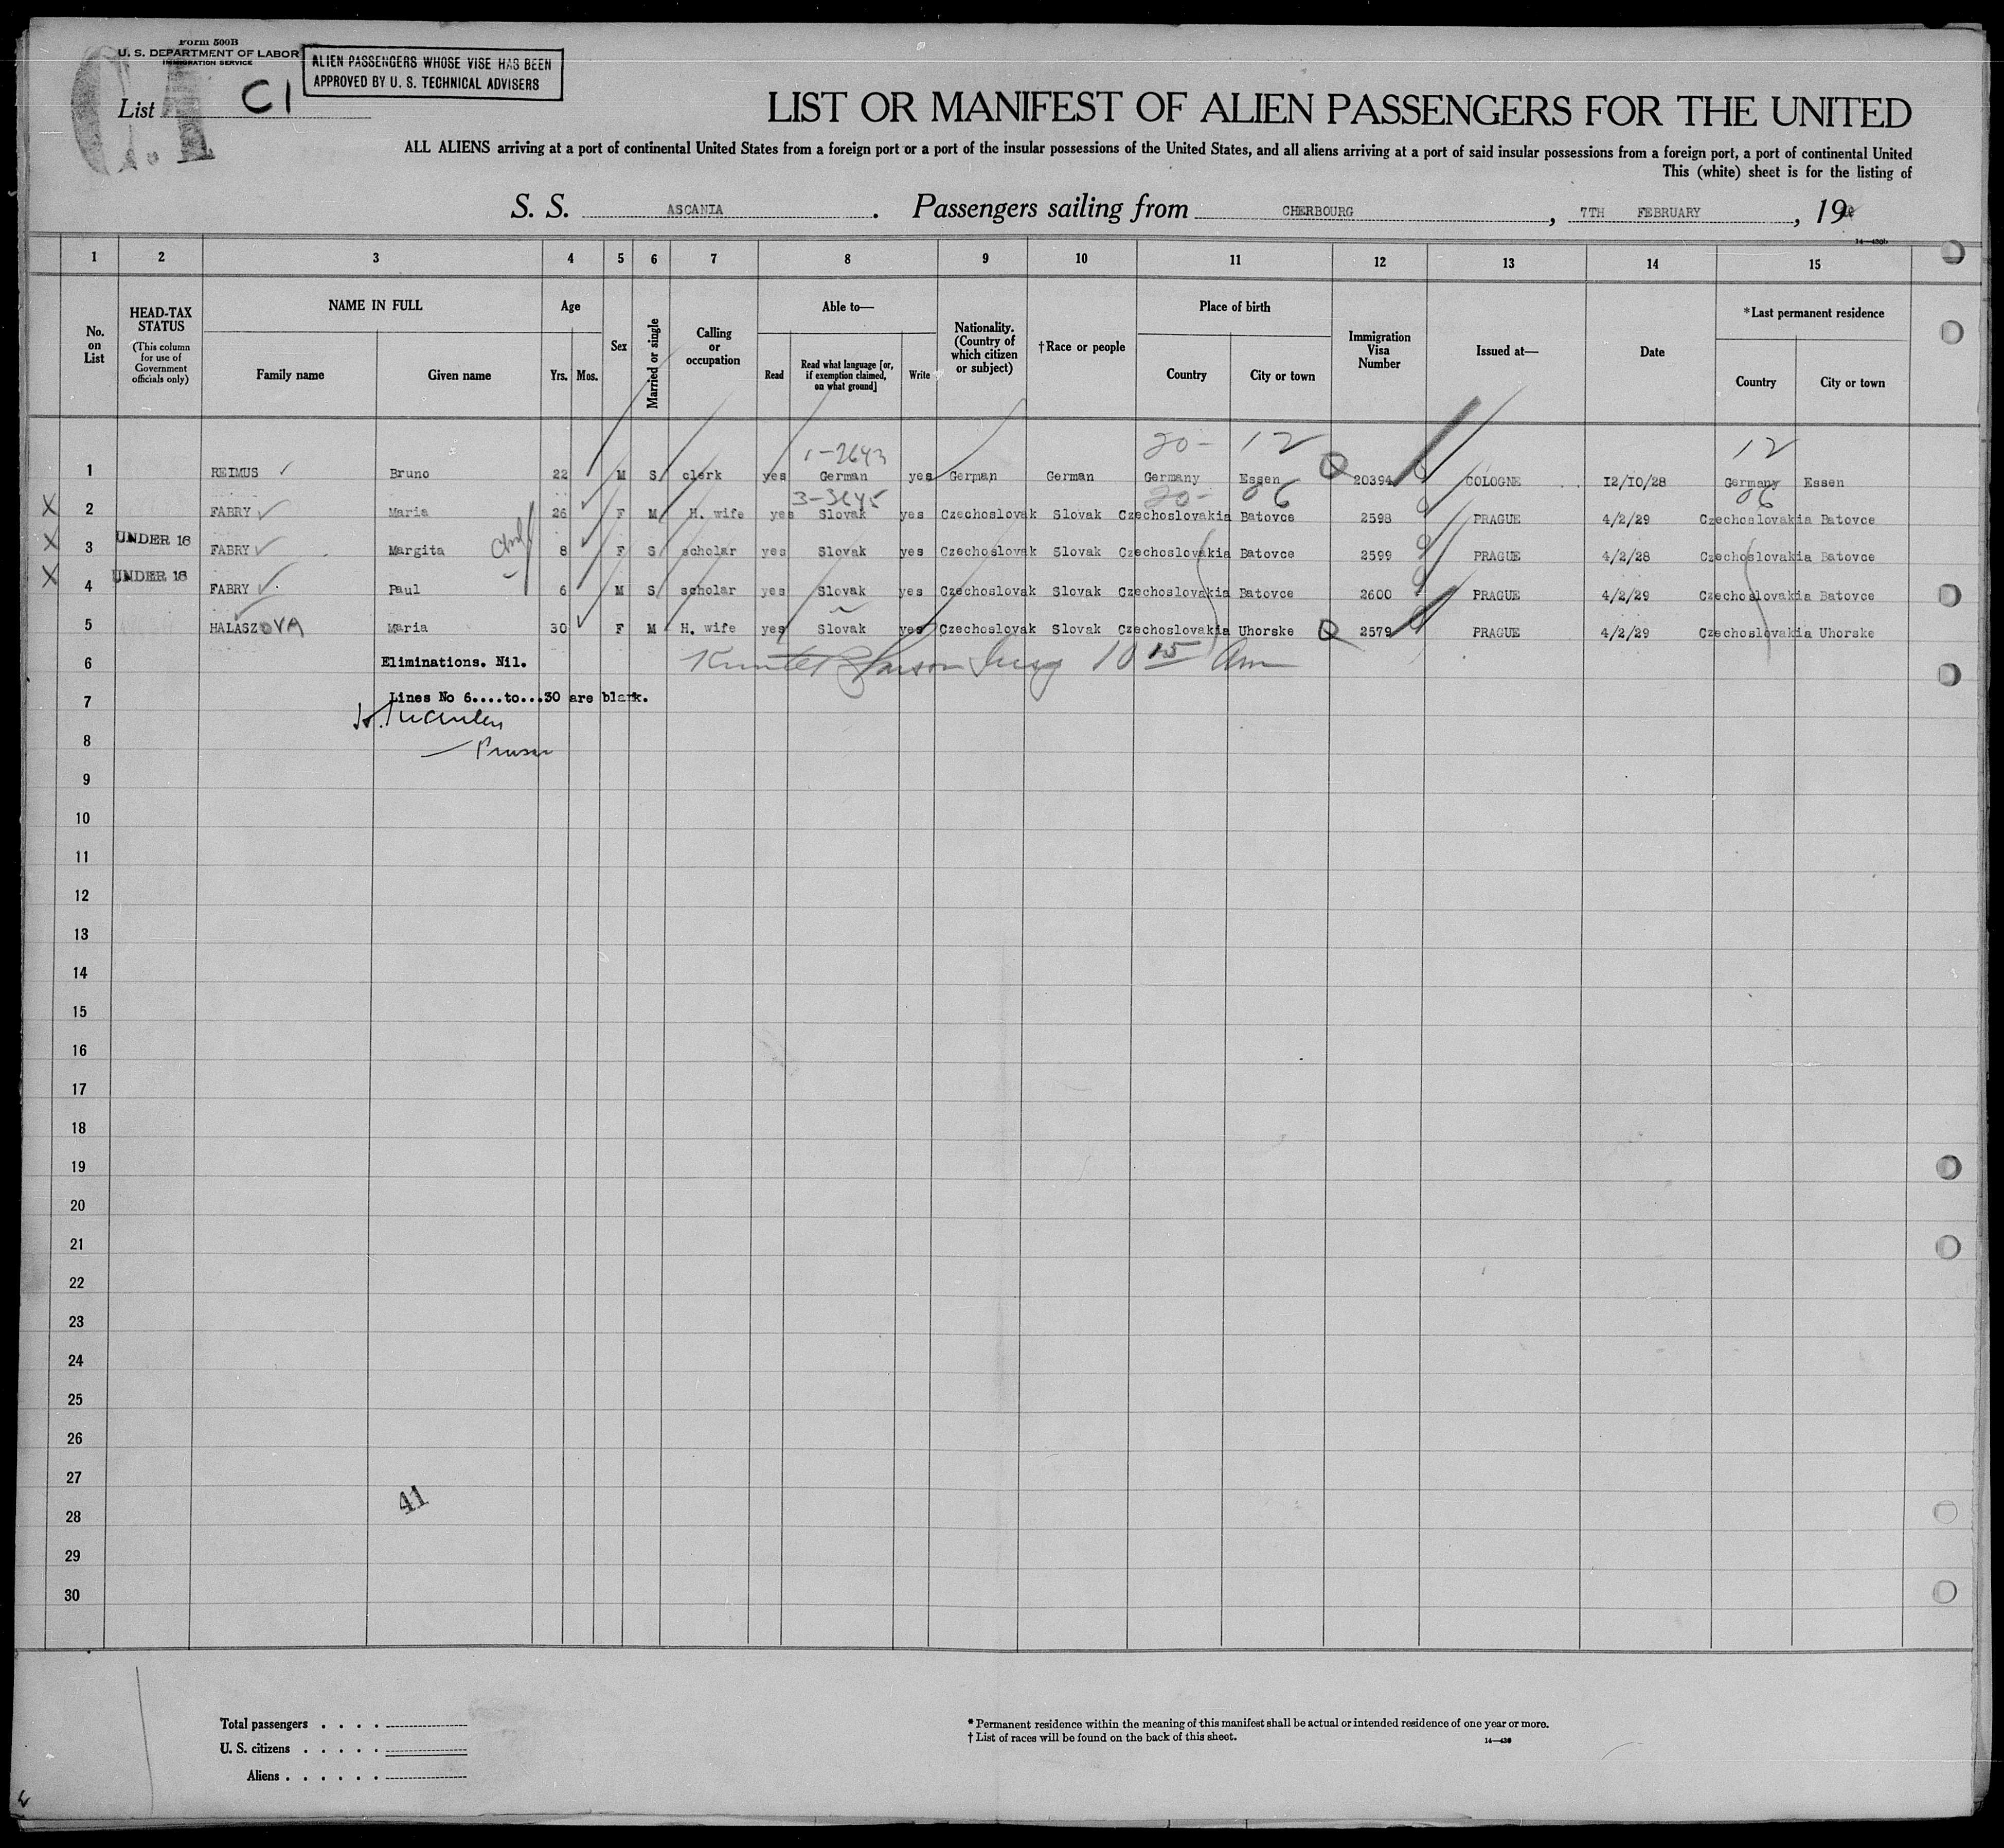 Form 500B
U. S. DEPARTMENT OF LABOR
IMMIGRATION SERVICE
ALIEN PASSENGERS WHOSE VISE HAS BEEN
APPROVED BY U. S. TECHNICAL ADVISERS
List C1
LIST OR MANIFEST OF ALIEN PASSENGERS FOR THE UNITED
ALL ALIENS arriving at a port of continental United States from a foreign port or a port of the insular possessions of the United States, and all aliens arriving at a port of said insular possessions from a foreign port, a port of continental United
This (white) sheet is for the listing of
S. S. ASCANIA . Passengers sailing from CHERBOURG , 7TH FEBRUARY , 19
1 2 3 4 5 6 7 8 9 10 11 12 13 14 15
No. on List
HEAD-TAX STATUS (This column for use of Government officials only)
NAME IN FULL
Family name Given name
Age
Yrs. Mos.
Sex
Married or single
Calling or occupation
Able to—
Read Read what language [or, if exemption claimed, on what ground] Write
Nationality. (Country of which citizen or subject)
†Race or people
Place of birth
Country City or town
Immigration Visa Number
Issued at—
Date
*Last permanent residence
Country City or town
1-2643 20- 12 12
1 REIMUS Bruno 22 M S clerk yes German yes German German Germany Essen 20394 COLOGNE 12/10/28 Germany Essen
3-3645 20- 06 06
X 2 FABRY Maria 26 F M H. wife yes Slovak yes Czechoslovak Slovak Czechoslovakia Batovce 2598 PRAGUE 4/2/29 Czechoslovakia Batovce
X 3 UNDER 16 FABRY Margita 8 F S scholar yes Slovak yes Czechoslovak Slovak Czechoslovakia Batovce 2599 PRAGUE 4/2/28 Czechoslovakia Batovce
X 4 UNDER 16 FABRY Paul 6 M S scholar yes Slovak yes Czechoslovak Slovak Czechoslovakia Batovce 2600 PRAGUE 4/2/29 Czechoslovakia Batovce
5 HALASZOVA Maria 30 F M H. wife yes Slovak yes Czechoslovak Slovak Czechoslovakia Uhorske 2579 PRAGUE 4/2/29 Czechoslovakia Uhorske
6 Eliminations. Nil. 10 15 Am
7 Lines No 6....to...30 are blank.
8
9
10
11
12
13
14
15
16
17
18
19
20
21
22
23
24
25
26
27
41
28
29
30
Total passengers . . . .
U. S. citizens . . . . .
Aliens . . . . . .
* Permanent residence within the meaning of this manifest shall be actual or intended residence of one year or more.
† List of races will be found on the back of this sheet.
14—430